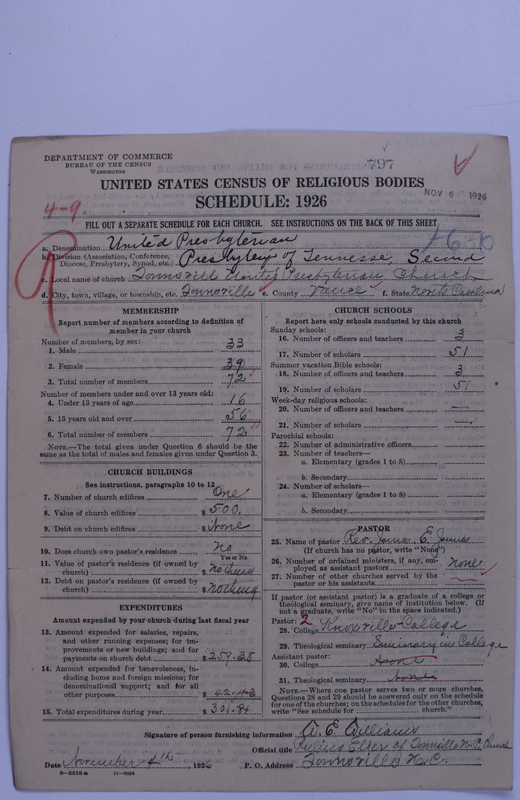 DEPARTMENT OF COMMERCE
BUREAU OF THE CENSUS
WASHINGTON
797
UNITED STATES CENSUS OF RELIGIOUS BODIES
SCHEDULE: 1926
NOV 6 1926
4-9.
FILL OUT A SEPARATE SCHEDULE FOR EACH CHURCH. SEE INSTRUCTIONS ON THE BACK OF THIS SHEET
a. Denomination United Presbyterian
b. Division (Association, Conference, Diocese, Presbytery, Synod, etc.) Presbytery of Tennesse, Second
c. Local name of church Townsvill United Presbyterian Church
d. City, town, village, or township, etc. Townsville e. County Vance f. State North Carolina
MEMBERSHIP
Report number of members according to definition of
member in your church
Number of members, by sex:
1. Male 33
2. Female 39
3. Total number of members 72
Number of members under and over 13 years old:
4. Under 13 years of age 16
5. 13 years old and over 56
6. Total number of members 72
NOTE.—The total given under Question 6 should be the
same as the total of males and females given under Question 3.
CHURCH BUILDINGS
See instructions, paragraphs 10 to 13
7. Number of church edifices One
8. Value of church edifices $ 500.
9. Debt on church edifices $ None
10. Does church own pastor's residence No
Yes or No
11. Value of pastor's residence (if owned by
church) $ nothing
12. Debt on pastor's residence (if owned by
church) $ nothing
EXPENDITURES
Amount expended by your church during last fiscal year
13. Amount expended for salaries, repairs,
and other running expenses; for improvements or new buildings; and for
payments on church debt $ 259.38
14. Amount expended for benevolences, including home and foreign missions; for
denominational support; and for all
other purposes $ 42.43
15. Total expenditures during year $ 301.81
CHURCH SCHOOLS
Report here only schools conducted by this church
Sunday schools:
16. Number of officers and teachers 3
17. Number of scholars 51
Summer vacation Bible schools:
18. Number of officers and teachers 3
19. Number of scholars 51
Week-day religious schools:
20. Number of officers and teachers —
21. Number of scholars —
Parochial schools:
22. Number of administrative officers
23. Number of teachers—
a. Elementary (grades 1 to 8)
b. Secondary
24. Number of scholars—
a. Elementary (grades 1 to 8)
b. Secondary
PASTOR
25. Name of pastor Rev. E.
(If church has no pastor, write "None")
26. Number of ordained ministers, if any, employed as assistant pastors None
27. Number of other churches served by the
pastor or his assistants
If pastor (or assistant pastor) is a graduate of a college or
theological seminary, give name of institution below. (If
not a graduate, write "No" in the space indicated.)
Pastor: 2
28. College Knoxville College
29. Theological seminary Seminary in College
Assistant pastor:
30. College None
31. Theological seminary None
NOTE.—Where one pastor serves two or more churches,
Questions 28 and 29 should be answered only on the schedule
for one of the churches; on the schedules for the other churches,
write "See schedule for church."
Signature of person furnishing information E. Williams
Official title Ruling Elder of Townsville N.C. Church
Date November 4th, 1926 P. O. Address Townsville N.C.
8-5318a 11-9084